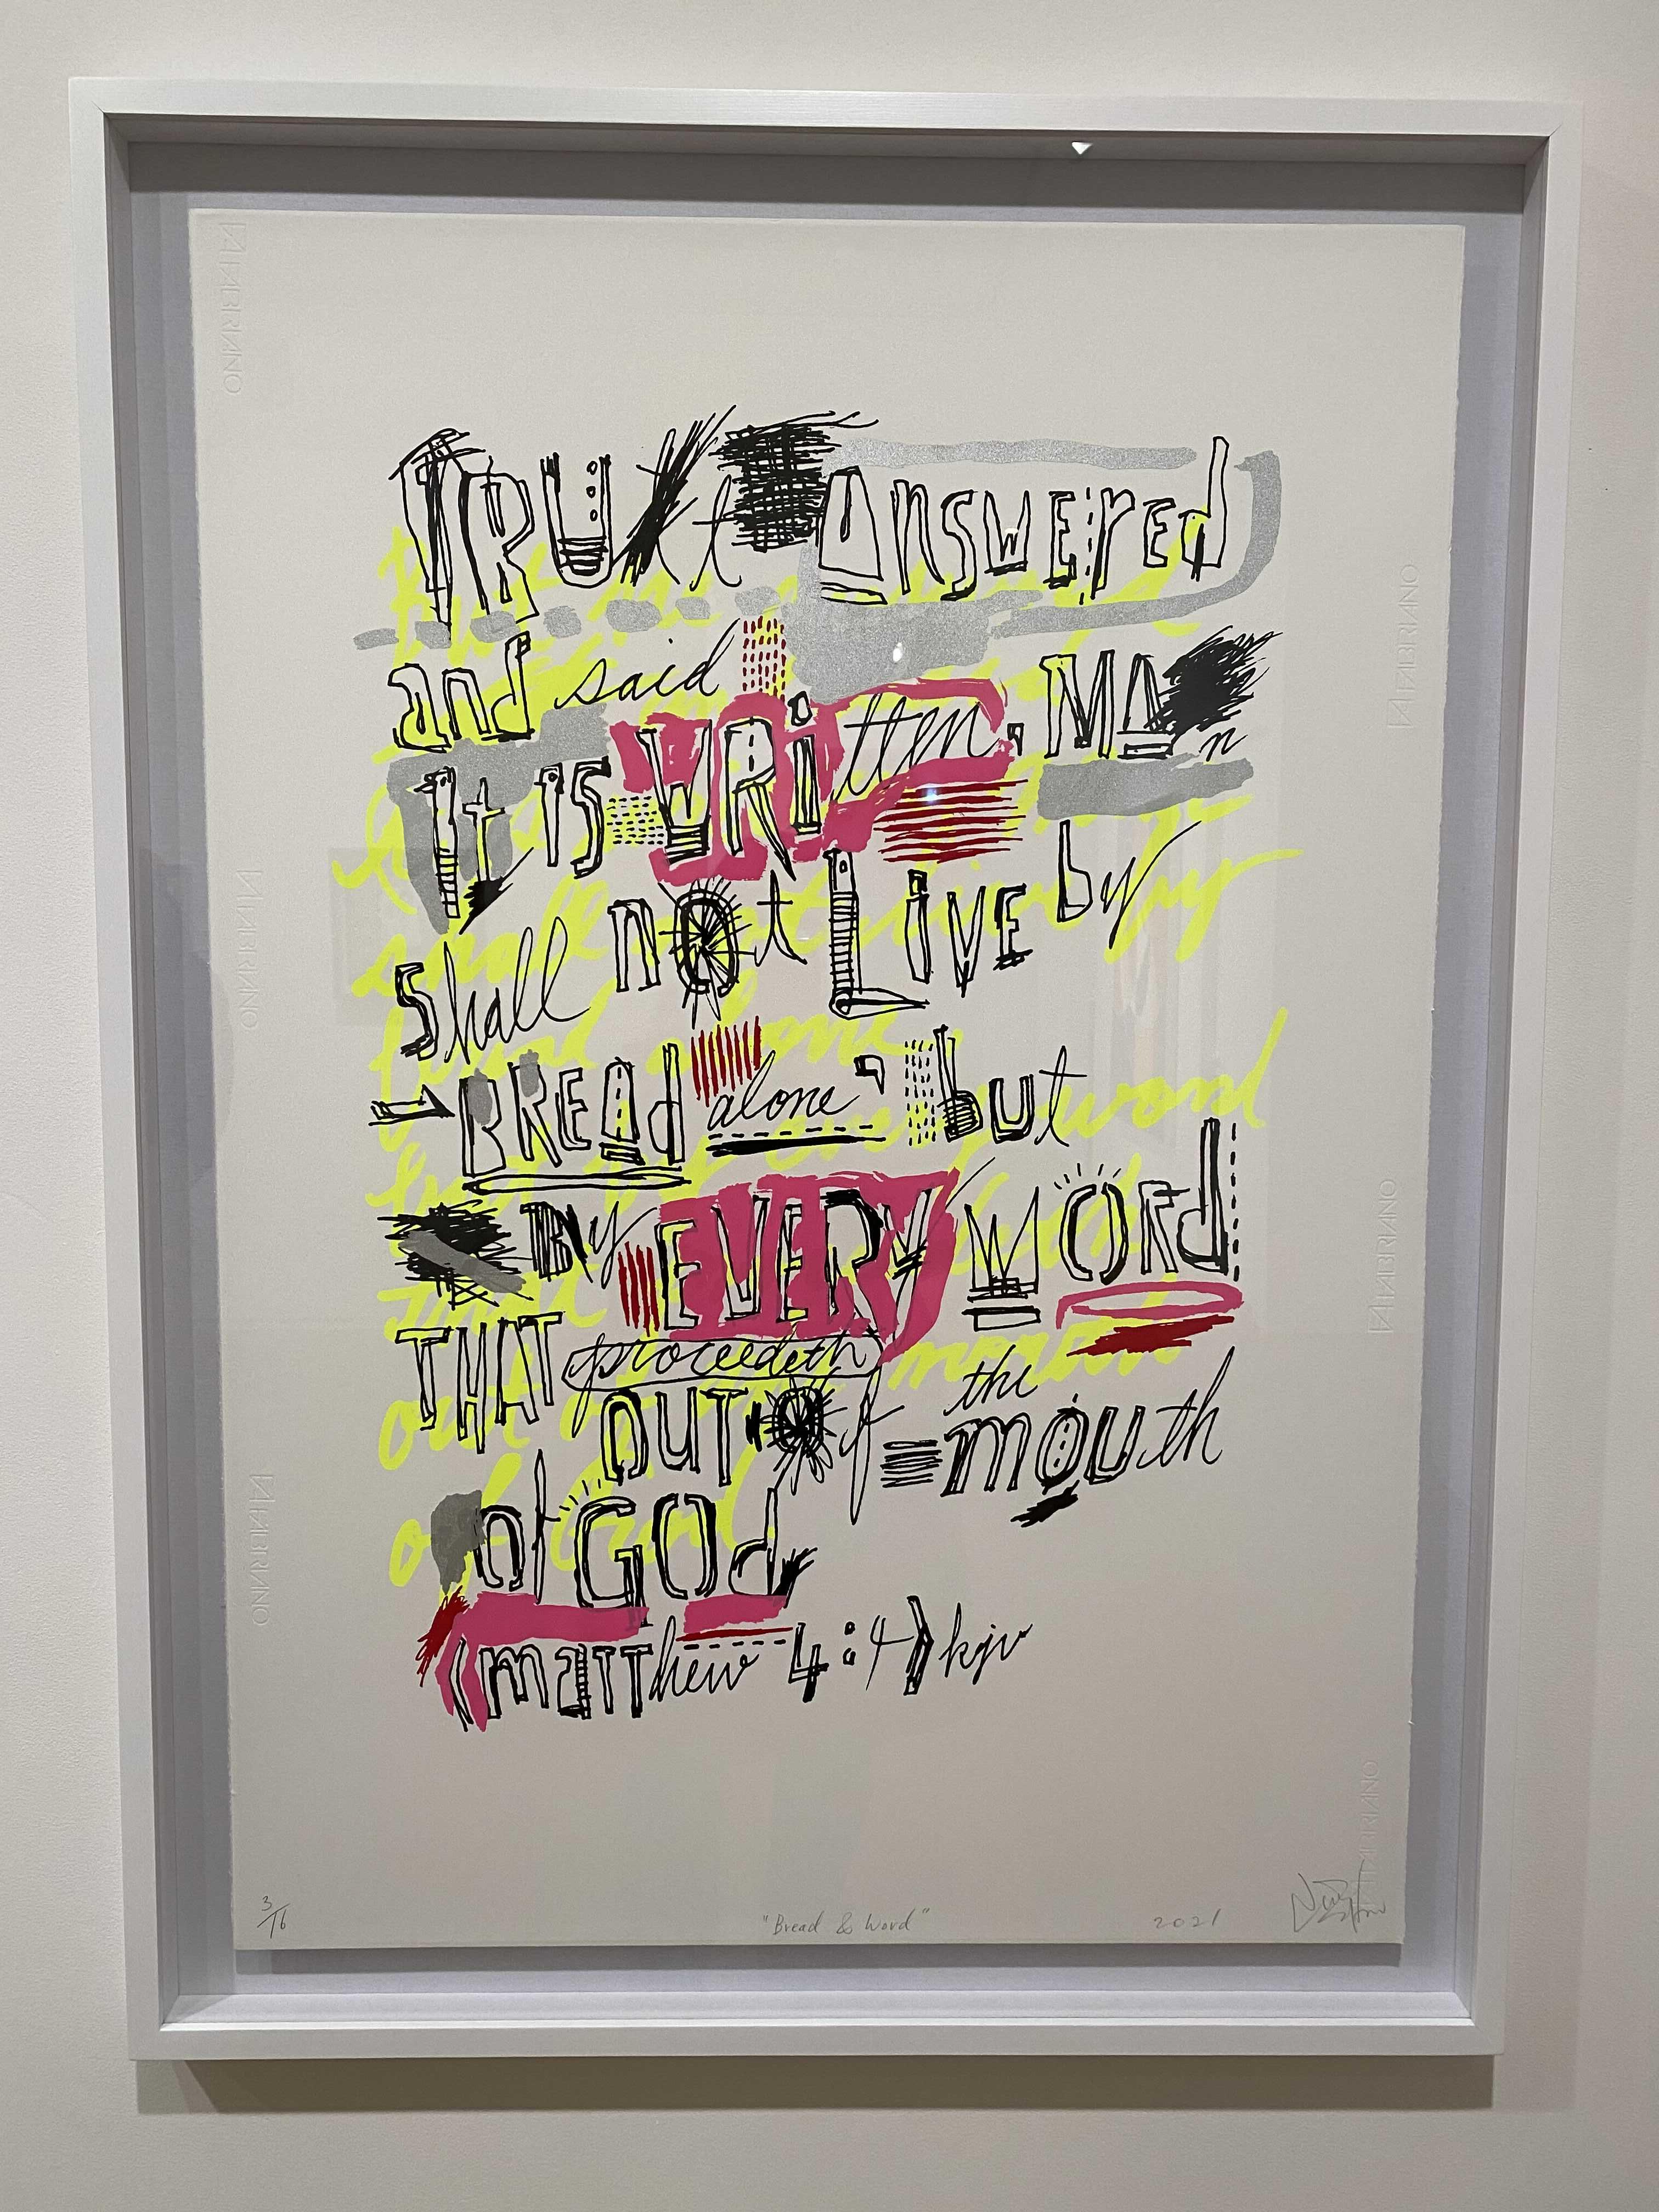 answered
and said
It is WRitten, MAn
Shall not Live by
BREAd alone, but
By EVERY WOrd
THAT proceedeth
OUT Of the mouth
of GOd
(maTThew 4:4) kjv
3/16 "Bread & Word" 2021
FABRIANO
FABRIANO
FABRIANO
FABRIANO
FABRIANO
FABRIANO
FABRIANO